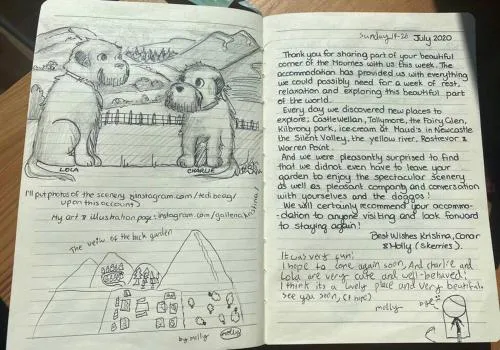 LOLA
CHARLIE
I'll put photos of the scenery
upon this account)
My art & illustration page: instagram.com/
The veiw of the back garden
by molly
molly
Sunday 19-26 July 2020
Thank you for sharing part of your beautiful
corner of the Mournes with us this week. The
accommodation has provided us with everything
we could possibly need for a week of rest,
relaxation and exploring this beautiful part
of the world.
Every day we discovered new places to
explore; Castlewellan, Tollymore, the Fairy Glen,
Kilbroney park, ice cream at Maud's in Newcastle
the Silent Valley, the yellow river, Rostrevor &
Warren Point.
And we were pleasantly surprised to find
that we did not even have to leave your
garden to enjoy the spectacular scenery
as well as pleasant company and conversation
with yourselves and the doggos!
We will certainly recommend your accommo-
-dation to anyone visiting and look forward
to staying again!
Best Wishes Kristina, Conor
& Holly (Skerries).
It was very fun!
I hope to come again soon, And charlie and
Lola are very cute and well-behaved!
I think its a lovely place and very beautiful.
see you soon, (I hope)
molly